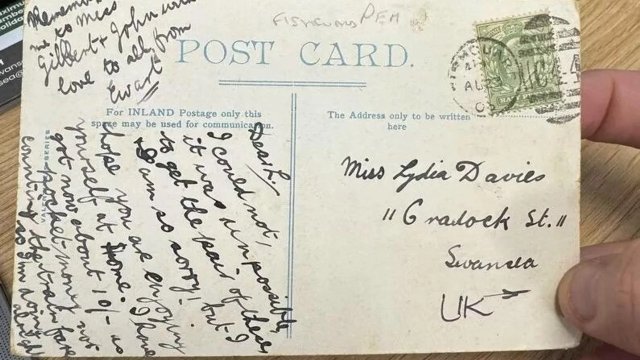 Remember
me to Miss
Gilbert + John with
love to all from
Ewart
FISHGUARD PEM
POST CARD.
For INLAND Postage only this
space may be used for communication.
The Address only to be written
here
AU
Dear L.
I could not,
it was unpossible
to get the pair of these
I am so sorry! but I
hope you are enjoying
yourself at home. I have
got now about 10/- as
pocket money not
counting the train fare
so I'm doing
SERIES
Miss Lydia Davies
11 Cradock St.
Swansea
UK